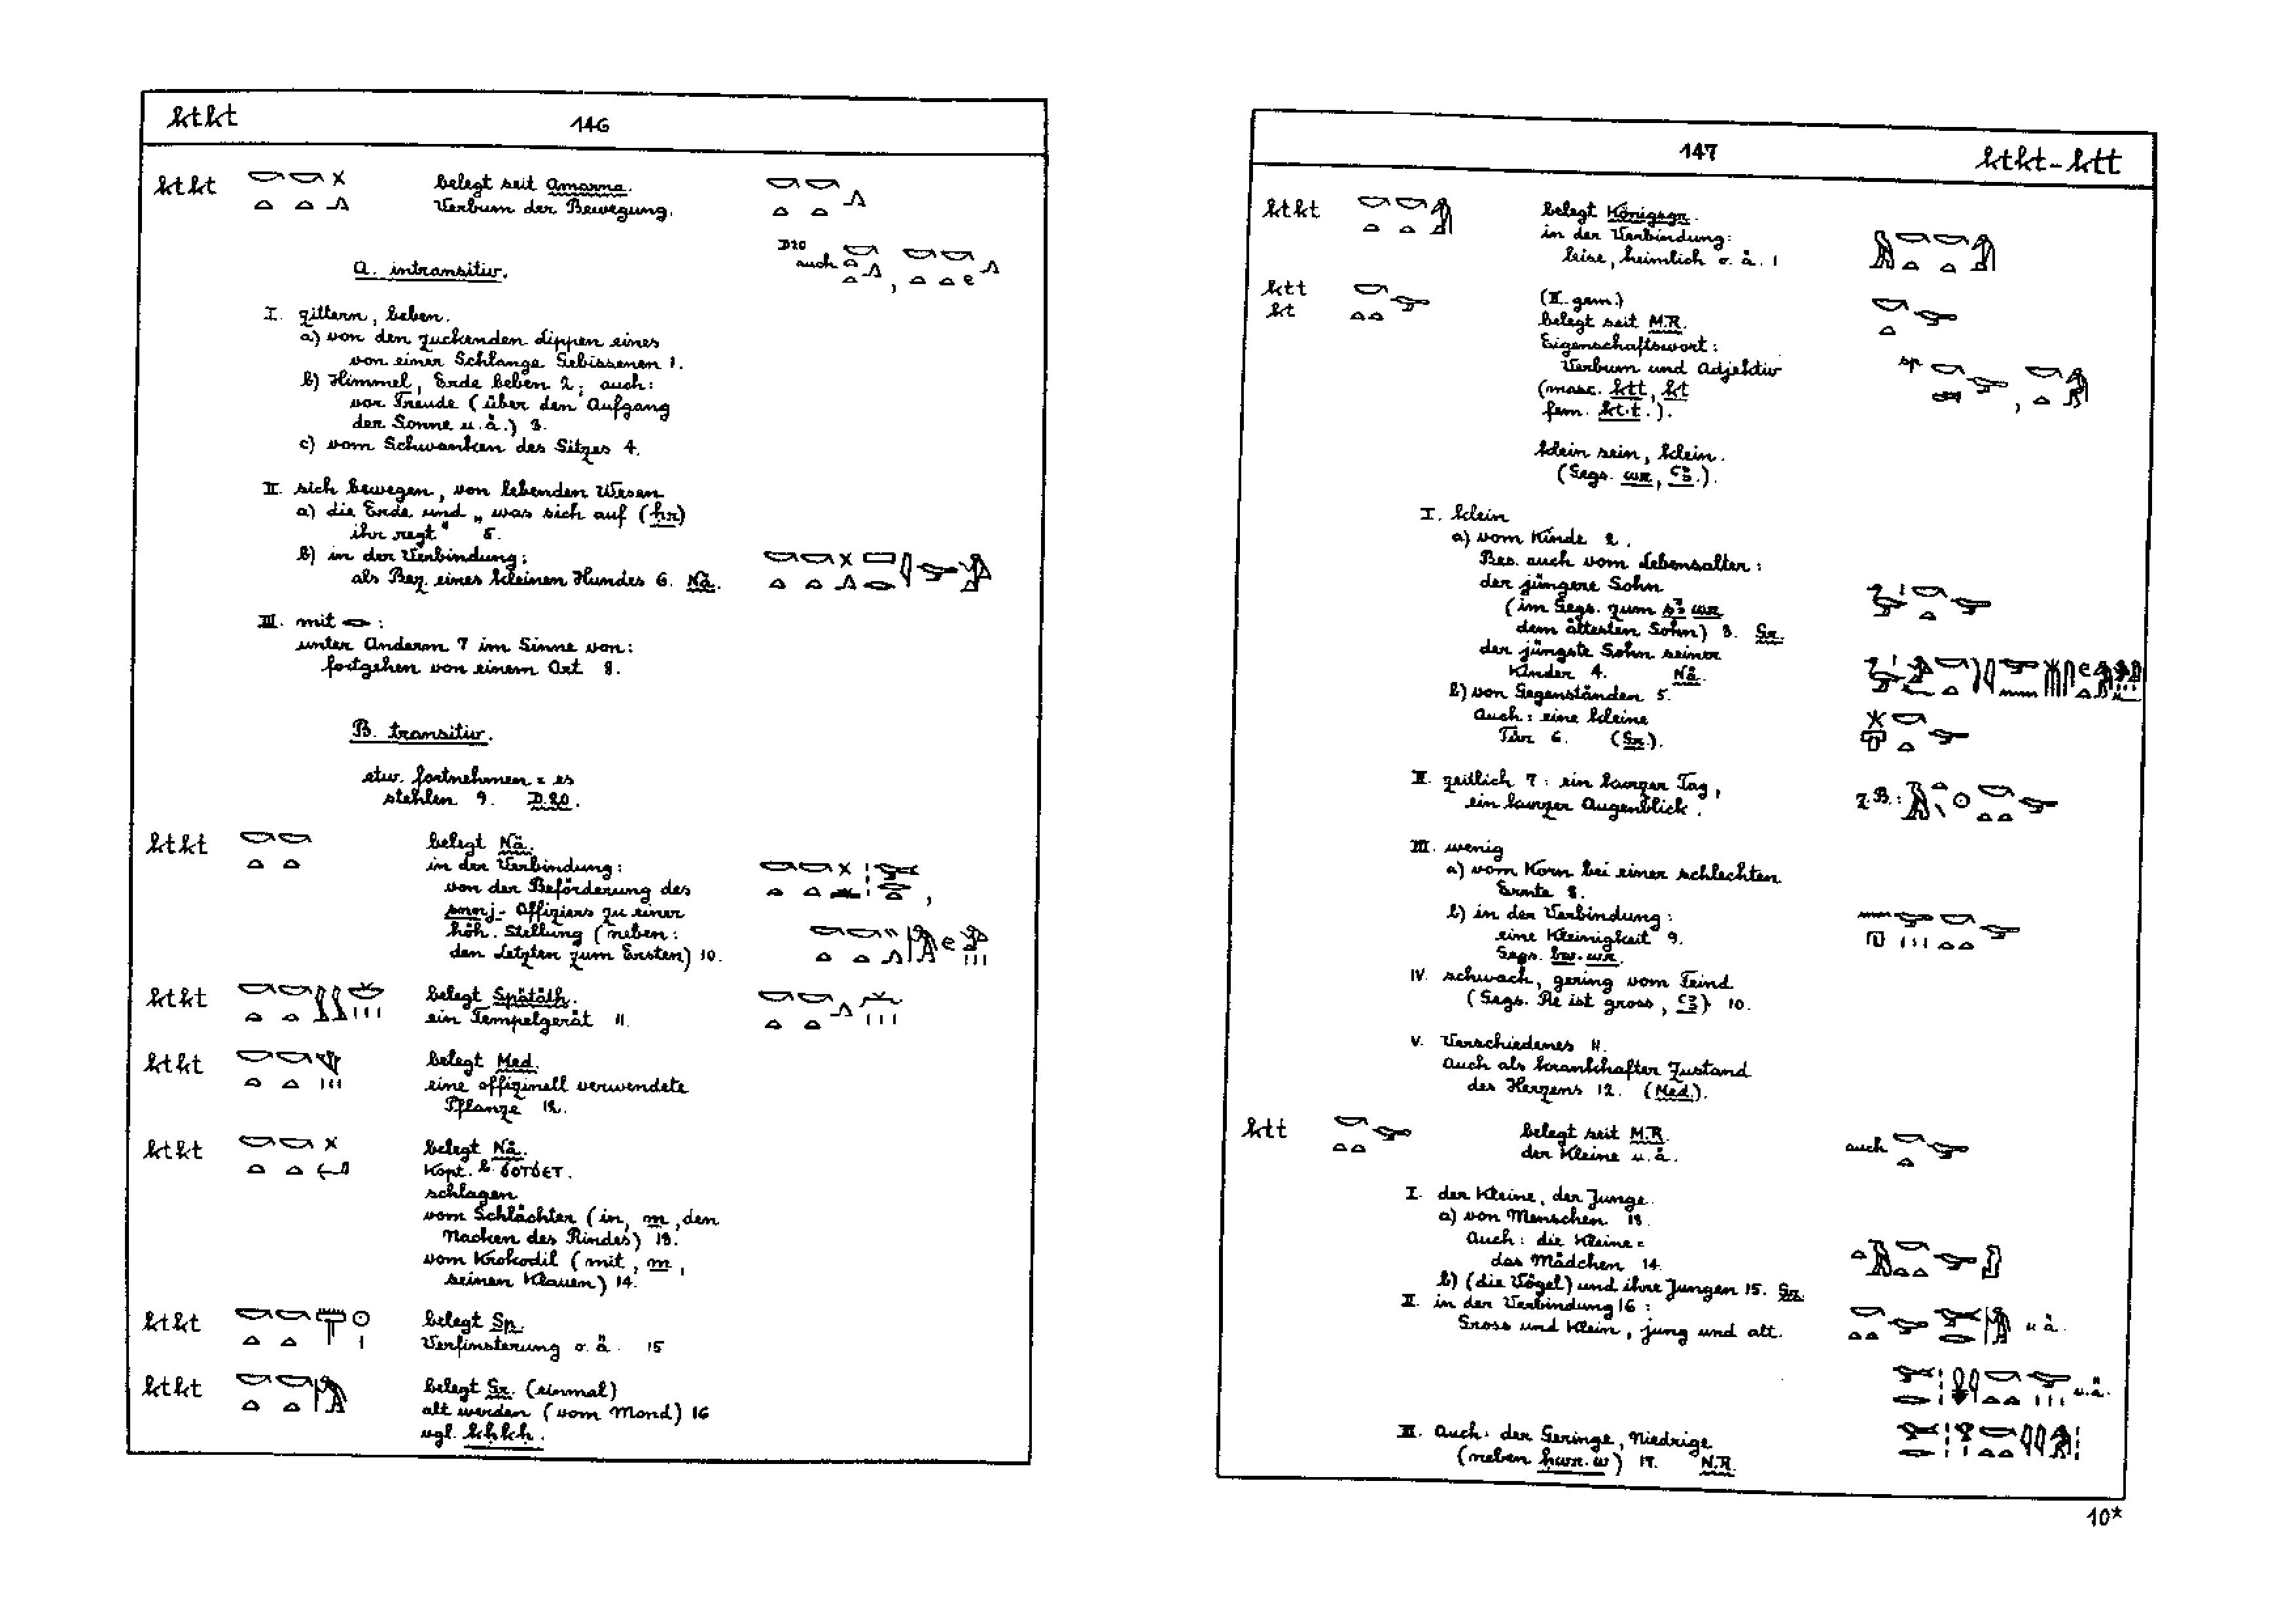 ktkt 146
ktkt belegt seit Amarna.
Verbum der Bewegung.
D20
auch
A. intransitiv.
I. zittern, beben.
a) von den zuckenden Lippen eines
von einer Schlange Gebissenen 1.
b) Himmel, Erde beben 2; auch:
vor Freude (über den Aufgang
der Sonne u. ä.) 3.
c) vom Schwanken des Sitzes 4.
II. sich bewegen, von lebenden Wesen
a) die Erde und „was sich auf (ḥr)
ihr regt" 5.
b) in der Verbindung:
als Bez. eines kleinen Hundes 6. Nä.
III. mit :
unter Anderm 7 im Sinne von:
fortgehen von einem Ort 8.
B. transitiv.
etw. fortnehmen = es
stehlen 9. D.20.
ktkt belegt Nä.
in der Verbindung:
von der Beförderung des
Offiziers zu einer
höh. Stellung (neben:
den Letzten zum Ersten) 10.
ktkt belegt Spätäth.
ein Tempelgerät 11.
ktkt belegt Med.
eine offizinell verwendete
Pflanze 12.
ktkt belegt Nä.
Kopt. b. ϭⲟⲧϭⲉⲧ.
schlagen
vom Schlächter (in, m, den
Nacken des Rindes) 13.
vom Krokodil (mit, m,
seinen Klauen) 14.
ktkt belegt Sp.
Verfinsterung o. ä. 15
ktkt belegt Gr. (einmal)
alt werden (vom Mond) 16
vgl. kḥkḥ.
147 ktkt-ktt
ktkt belegt Königsgr.
in der Verbindung:
leise, heimlich o. ä. 1
ktt
kt
(II. gem.)
belegt seit M.R.
Eigenschaftswort:
Verbum und Adjektiv
(masc. ktt, kt
fem. kt.t.).
Sp
klein sein, klein.
(Gegs. wr, ꜥꜣ.).
I. klein
a) vom Kinde 2.
Bes. auch vom Lebensalter:
der jüngere Sohn
(im Gegs. zum sꜣ wr
dem ältesten Sohn) 3. Gr.
der jüngste Sohn seiner
Kinder 4. Nä.
b) von Gegenständen 5.
Auch: eine kleine
Tür 6. (Gr.).
II. zeitlich 7: ein kurzer Tag,
ein kurzer Augenblick.
z.B.:
III. wenig
a) vom Korn bei einer schlechten
Ernte 8.
b) in der Verbindung:
eine Kleinigkeit 9.
Gegs. bw-wr.
IV. schwach, gering vom Feind
(Gegs. Re ist gross, ꜥꜣ) 10.
V. Verschiedenes 11.
Auch als krankhafter Zustand
des Herzens 12. (Med.).
ktt belegt seit M.R.
der Kleine u. ä.
auch
I. der Kleine, der Junge.
a) von Menschen 13.
Auch: die Kleine =
das Mädchen 14.
b) (die Vögel) und ihre Jungen 15. Gr.
II. in der Verbindung 16:
Gross und Klein, jung und alt.
u ä.
u. ä.
III. Auch: der Geringe, Niedrige
(neben ḥwr.w) 17. N.R.
10*